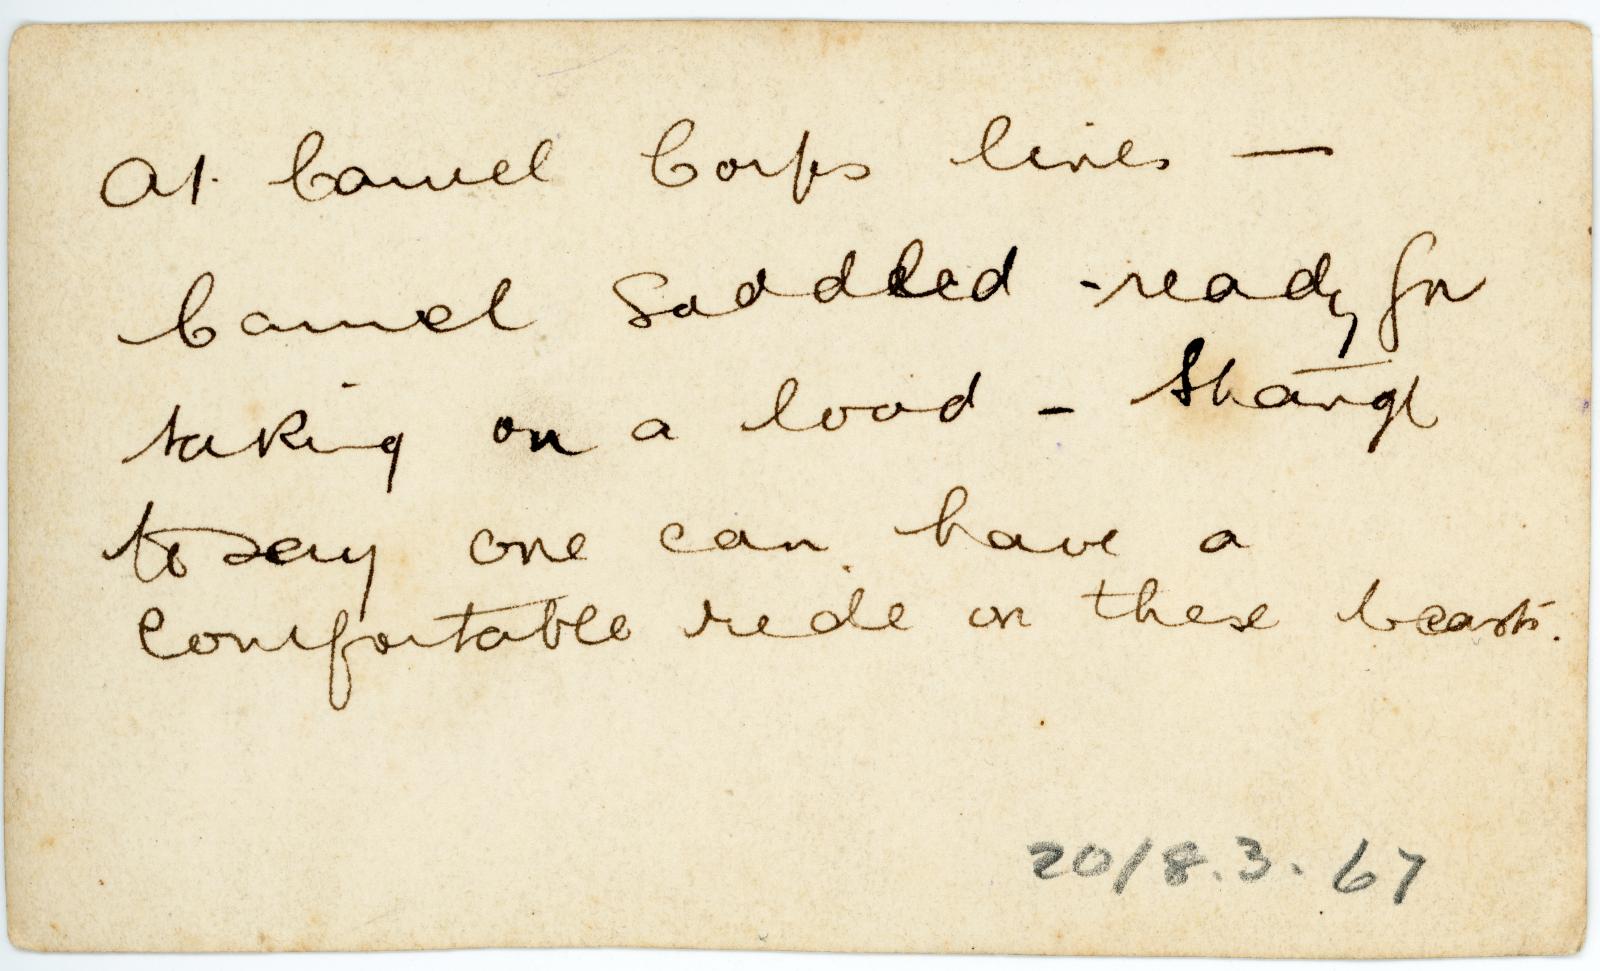 At Camel Corps lines —
Camel Saddled - ready for
taking on a load - Strange
to say one can have a
comfortable ride on these beasts.
2018.3.67